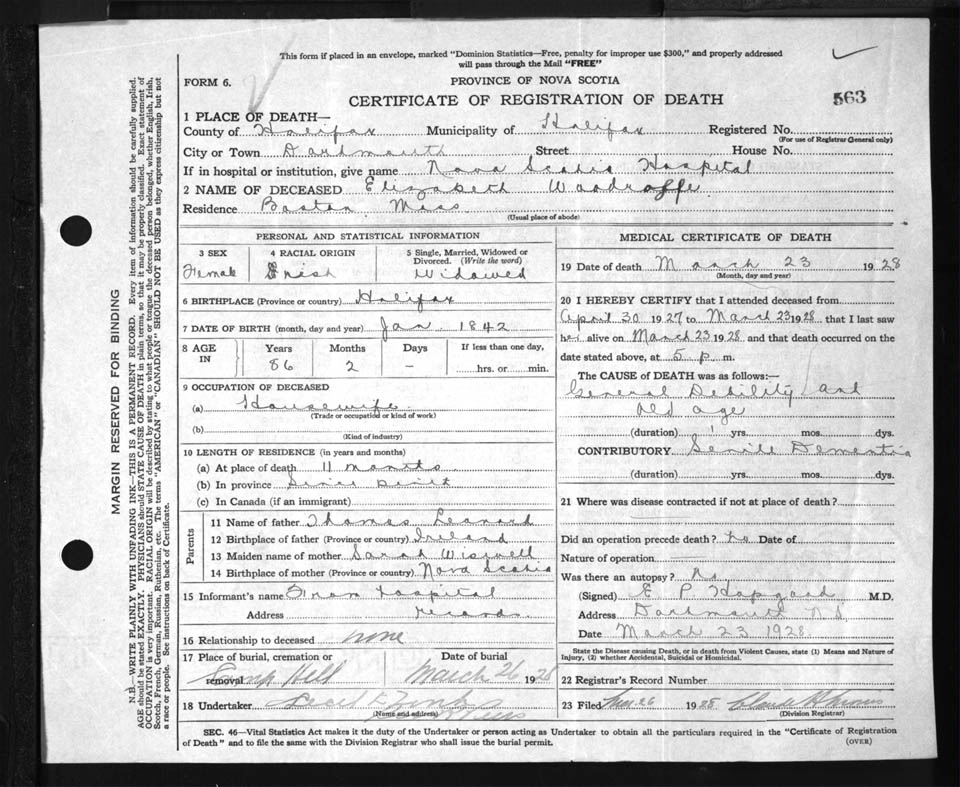 This form if placed in an envelope, marked "Dominion Statistics—Free, penalty for improper use $300," and properly addressed
will pass through the Mail "FREE"
FORM 6.
PROVINCE OF NOVA SCOTIA
CERTIFICATE OF REGISTRATION OF DEATH
563
1 PLACE OF DEATH—
County of Halifax Municipality of Halifax Registered No.
(For use of Registrar General only)
City or Town Dartmouth Street House No.
If in hospital or institution, give name Nova Scotia Hospital
2 NAME OF DECEASED Elizabeth Woodroffe
Residence Boston Mass
(Usual place of abode)
PERSONAL AND STATISTICAL INFORMATION
3 SEX 4 RACIAL ORIGIN 5 Single, Married, Widowed or
Divorced. (Write the word)
Female Irish Widowed
6 BIRTHPLACE (Province or country) Halifax
7 DATE OF BIRTH (month, day and year) Jan 1842
8 AGE IN Years Months Days If less than one day,
86 2 – hrs. or min.
9 OCCUPATION OF DECEASED
(a) Housewife
(Trade or occupation or kind of work)
(b)
(Kind of industry)
10 LENGTH OF RESIDENCE (in years and months)
(a) At place of death 11 months
(b) In province Since
(c) In Canada (if an immigrant)
Parents
11 Name of father Thomas Leonard
12 Birthplace of father (Province or country) Ireland
13 Maiden name of mother Sarah Wiswell
14 Birthplace of mother (Province or country) Nova Scotia
15 Informant's name From Hospital
Address records
16 Relationship to deceased none
17 Place of burial, cremation or removal Date of burial
Camp Hill March 26 1928
18 Undertaker
(Name and address)
MEDICAL CERTIFICATE OF DEATH
19 Date of death March 23 1928
(Month, day and year)
20 I HEREBY CERTIFY that I attended deceased from
April 30 1927 to March 23 1928 that I last saw
her alive on March 23 1928 and that death occurred on the
date stated above, at 5 p m.
The CAUSE OF DEATH was as follows:—
General Debility and
old age
(duration) 1 yrs. mos. dys.
CONTRIBUTORY Senile Dementia
(duration) yrs. mos. dys.
21 Where was disease contracted if not at place of death?
Did an operation precede death? no Date of
Nature of operation
Was there an autopsy? No
(Signed) E P Hapgood M.D.
Address Dartmouth N S
Date March 23 1928
State the Disease causing Death, or in death from Violent Causes, state (1) Means and Nature of
Injury, (2) whether Accidental, Suicidal or Homicidal.
22 Registrar's Record Number
23 Filed Mar 26 1928
(Division Registrar)
SEC. 46—Vital Statistics Act makes it the duty of the Undertaker or person acting as Undertaker to obtain all the particulars required in the "Certificate of Registration
of Death" and to file the same with the Division Registrar who shall issue the burial permit.
(OVER)
MARGIN RESERVED FOR BINDING
N.B. WRITE PLAINLY WITH UNFADING INK—THIS IS A PERMANENT RECORD. Every item of information should be carefully supplied.
AGE should be stated EXACTLY. PHYSICIANS should STATE CAUSE OF DEATH in plain terms, so that it may be properly classified. Exact statement of
OCCUPATION is very important. RACIAL ORIGIN will be described by stating to what people or tongue the deceased person belonged, whether English, Irish,
Scotch, French, German, Russian, Ruthenian, etc. The terms "AMERICAN" or "CANADIAN" SHOULD NOT BE USED as they express citizenship but not
a race or people. See instructions on back of Certificate.